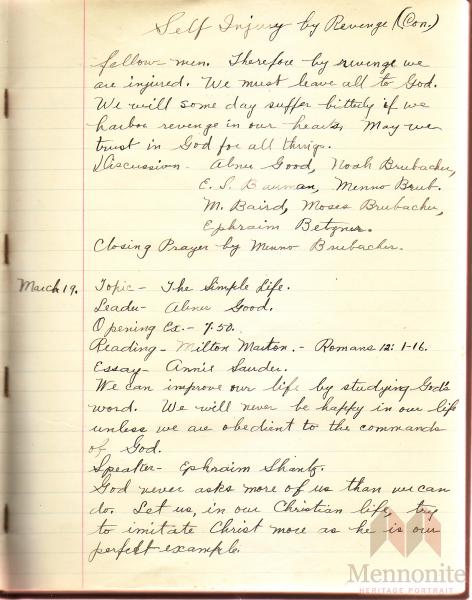 Self Injury by Revenge (Con.)
fellow men. Therefore by revenge we
are injured. We must leave all to God.
We will some day suffer bitterly if we
harbor revenge in our hearts, May we
trust in God for all things.
Discussion - Abner Good, Noah Brubacher,
E. S. Bauman, Menno Brub.
M. Baird, Moses Brubacher,
Ephraim Betzner.
Closing Prayer by Menno Brubacher.
March 19. Topic - The Simple Life.
Leader - Abner Good.
Opening Ex. - 7.50.
Reading - Milton Martin. - Romans 12: 1-16.
Essay - Annie Sauder.
We can improve our life by studying God's
word. We will never be happy in our life
unless we are obedient to the commands
of God.
Speaker - Ephraim Shantz.
God never asks more of us than we can
do. Let us, in our Christian life, try
to imitate Christ more as he is our
perfect example.
Mennonite
HERITAGE PORTRAIT